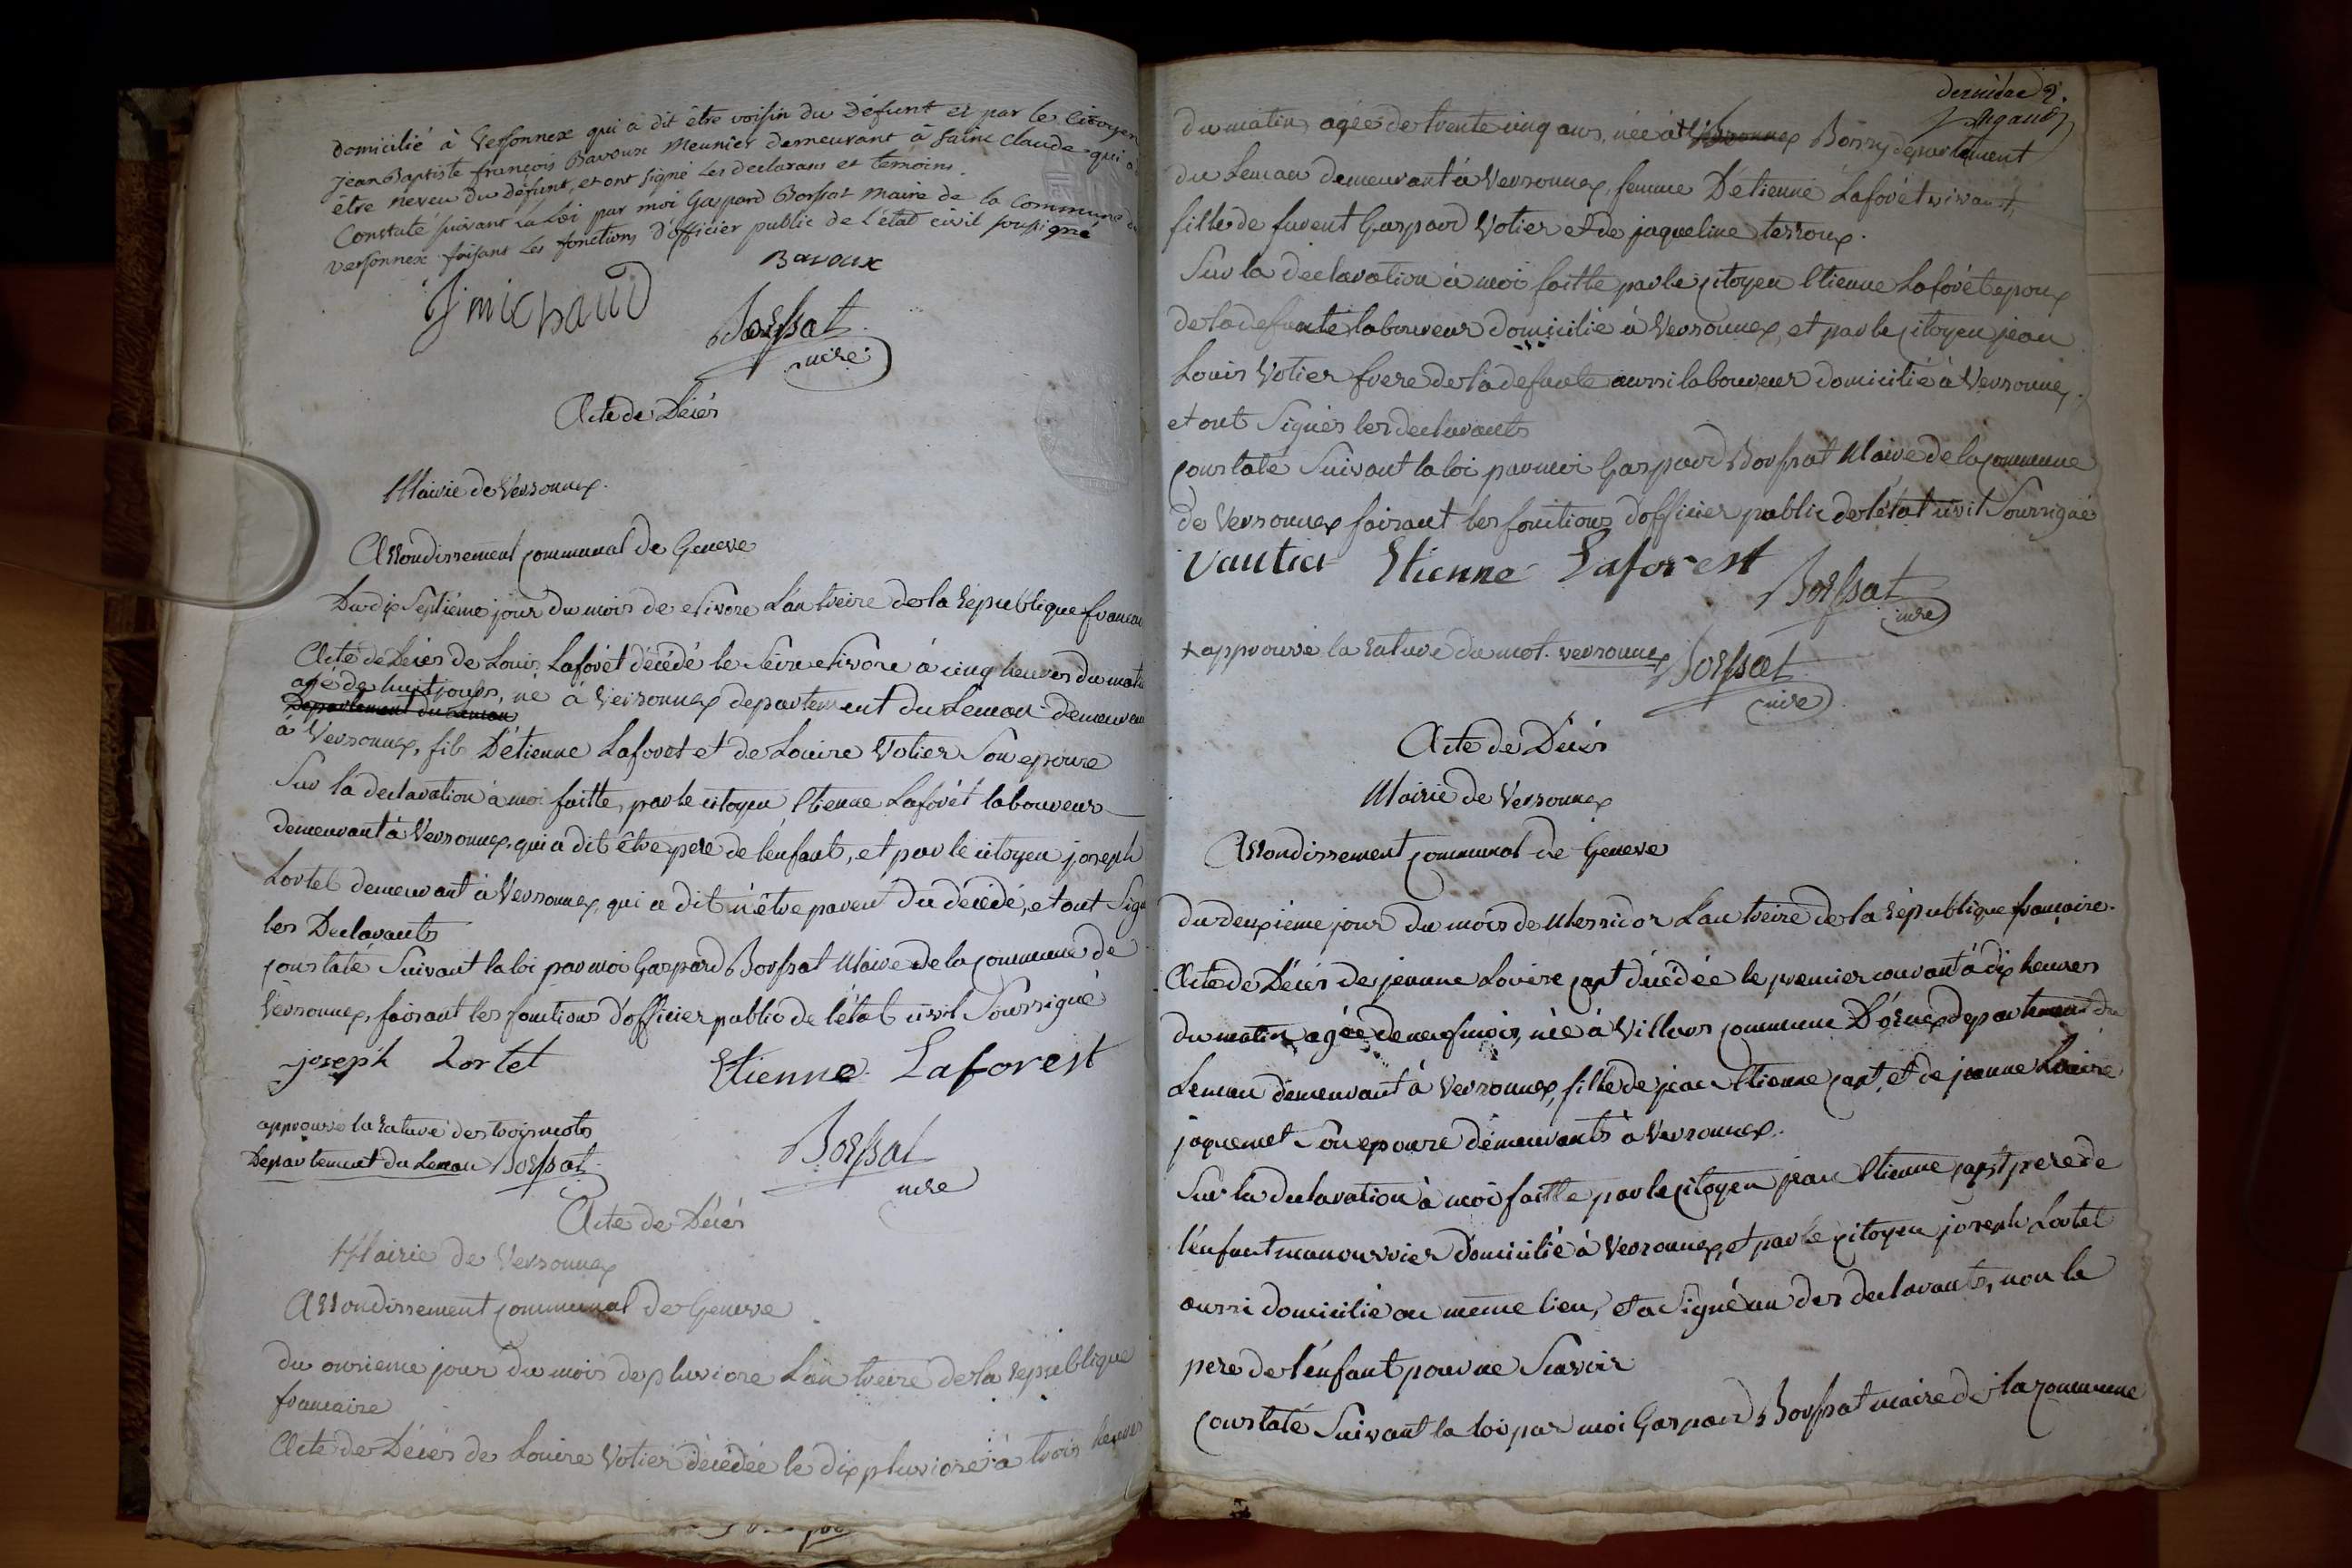 domicilié à Versonnex qui a dit être voisin du Défunt et par le Citoyen
Jean Baptiste françois Bavoux Meunier demeurant à Saint Claude qui a
être neveu du défunt, et ont signé les declarans et temoins.
Constaté suivant la Loi par moi Gaspard Borssat Maire de la Commune de
Versonnex faisant les fonctions d'officier public de l'état civil soussigné
Bavoux
J michaud
Borssat
mire
Acte de Décés
Mairie de Versonnex.
Arrondissement communal de Geneve
Du dix Septiéme jour du mois de nivose L'an treize de la République francai
Acte de Décés de Louis Laforêt décédé le Seize nivôse à cinq heures du mati
agé de huit jours, né à Versonnex departement du Leman demeuran
Departement du Leman
à Versonnex, fils D'étienne Laforet et de Louise Votier Son epouse
Sur la declaration à moi faitte, par le citoyen Etienne Laforêt laboureur
demeurant à Versonnex, qui a dit être pere de l'enfant, et par le citoyen joseph
Lortet demeurant à Versonnex, qui a dit n'être parent du décédé, et ont Sign
les Declarants
constaté Suivant la loi par moi Gaspard Borssat Maire de la commune de
Versonnex, faisant les fonctions d'officier public de l'état civil Soussigné
joseph Lortet Etienne Laforest
approuvé la rature des trois mots
Departement du Leman Borssat
Borssat
mire
Acte de Décés
Mairie de Versonnex
Arrondissement communal de Geneve
du onzieme jour du mois de pluviose L'an treize de la republique
francaise
Acte de Décés de Louise Votier décédée le dix pluviose à trois heures
derniere
du matin, agée de trente cinq ans, née à + Versonnex Bossy departement
du Leman demeurant à Versonnex, femme D'étienne Laforêt vivant,
fille de furent Gaspard Votier et de jaqueline terroux.
Sur la declaration à moi faitte par le citoyen Etienne Laforêt epoux
de la defunte laboureur domicilié à Versonnex, et par le citoyen jean
Louis Votier frere de la defunte aussi laboureur domicilié à Versonnex.
et ont Signés les declarants
constaté Suivant la loi par moi Gaspard Borssat Maire de la commune
de Versonnex faisant les fonctions d'officier public de l'état civil Soussigné
Vautier Etienne Laforest Borssat
mire
+ approuvé la rature du mot versonnex Borssat
mire
Acte de Décés
Mairie de Versonnex
Arrondissement communal de Geneve
du deuxiéme jour du mois de Messidor L'an treize de la république francaise.
Acte de Décés de jeanne Louise capt décédée le premier courant à dix heures
du matin agée de neuf mois, née à Villars commune D'ornex departement du
Leman demeurant à Versonnex, fille de jean Etienne capt, et de jeanne Louise
jaquemet Son epouse demeurants à Versonnex.
Sur la declaration à moi faitte par le citoyen jean Etienne capt pere de
l'enfant manouvrier domicilié à Versonnex, et par le citoyen joseph Lortet
aussi domicilié au même lieu, et a Signé un des declarants, non le
pere de l'enfant pour ne Scavoir
constaté Suivant la loi par moi Gaspard Borssat maire de la commune